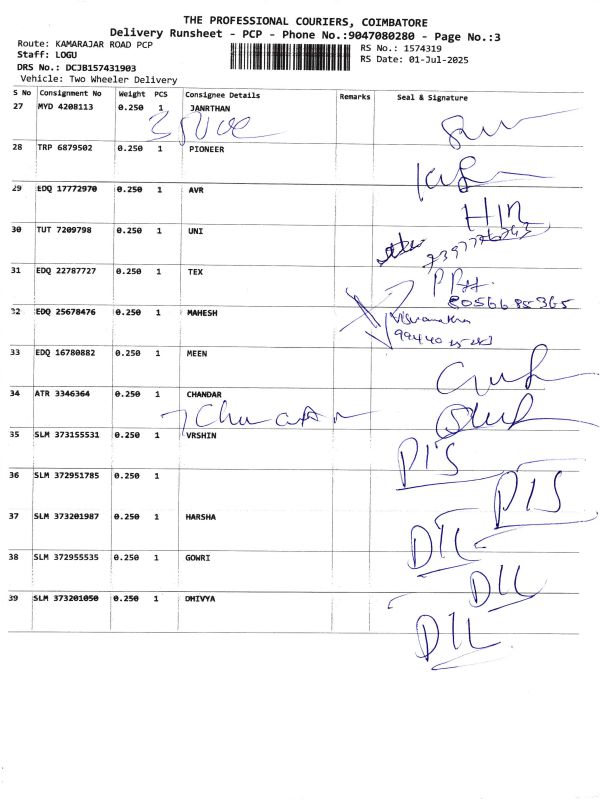 THE PROFESSIONAL COURIERS, COIMBATORE
Delivery Runsheet - PCP - Phone No.:9047080280 - Page No.:3
Route: KAMARAJAR ROAD PCP
Staff: LOGU
DRS No.: DCJB157431903
Vehicle: Two Wheeler Delivery
RS No.: 1574319
RS Date: 01-Jul-2025
S No Consignment No Weight PCS Consignee Details Remarks Seal & Signature
27 MYD 4208113 0.250 1 JANRTHAN
28 TRP 6879502 0.250 1 PIONEER
29 EDQ 17772970 0.250 1 AVR
30 TUT 7209798 0.250 1 UNI
31 EDQ 22787727 0.250 1 TEX
8056685365
32 EDQ 25678476 0.250 1 MAHESH
33 EDQ 16780882 0.250 1 MEEN
34 ATR 3346364 0.250 1 CHANDAR
35 SLM 373155531 0.250 1 VRSHIN
DIS
36 SLM 372951785 0.250 1
DIS
37 SLM 373201987 0.250 1 HARSHA
DIL
38 SLM 372955535 0.250 1 GOWRI
DIL
39 SLM 373201050 0.250 1 DHIVYA
DIL